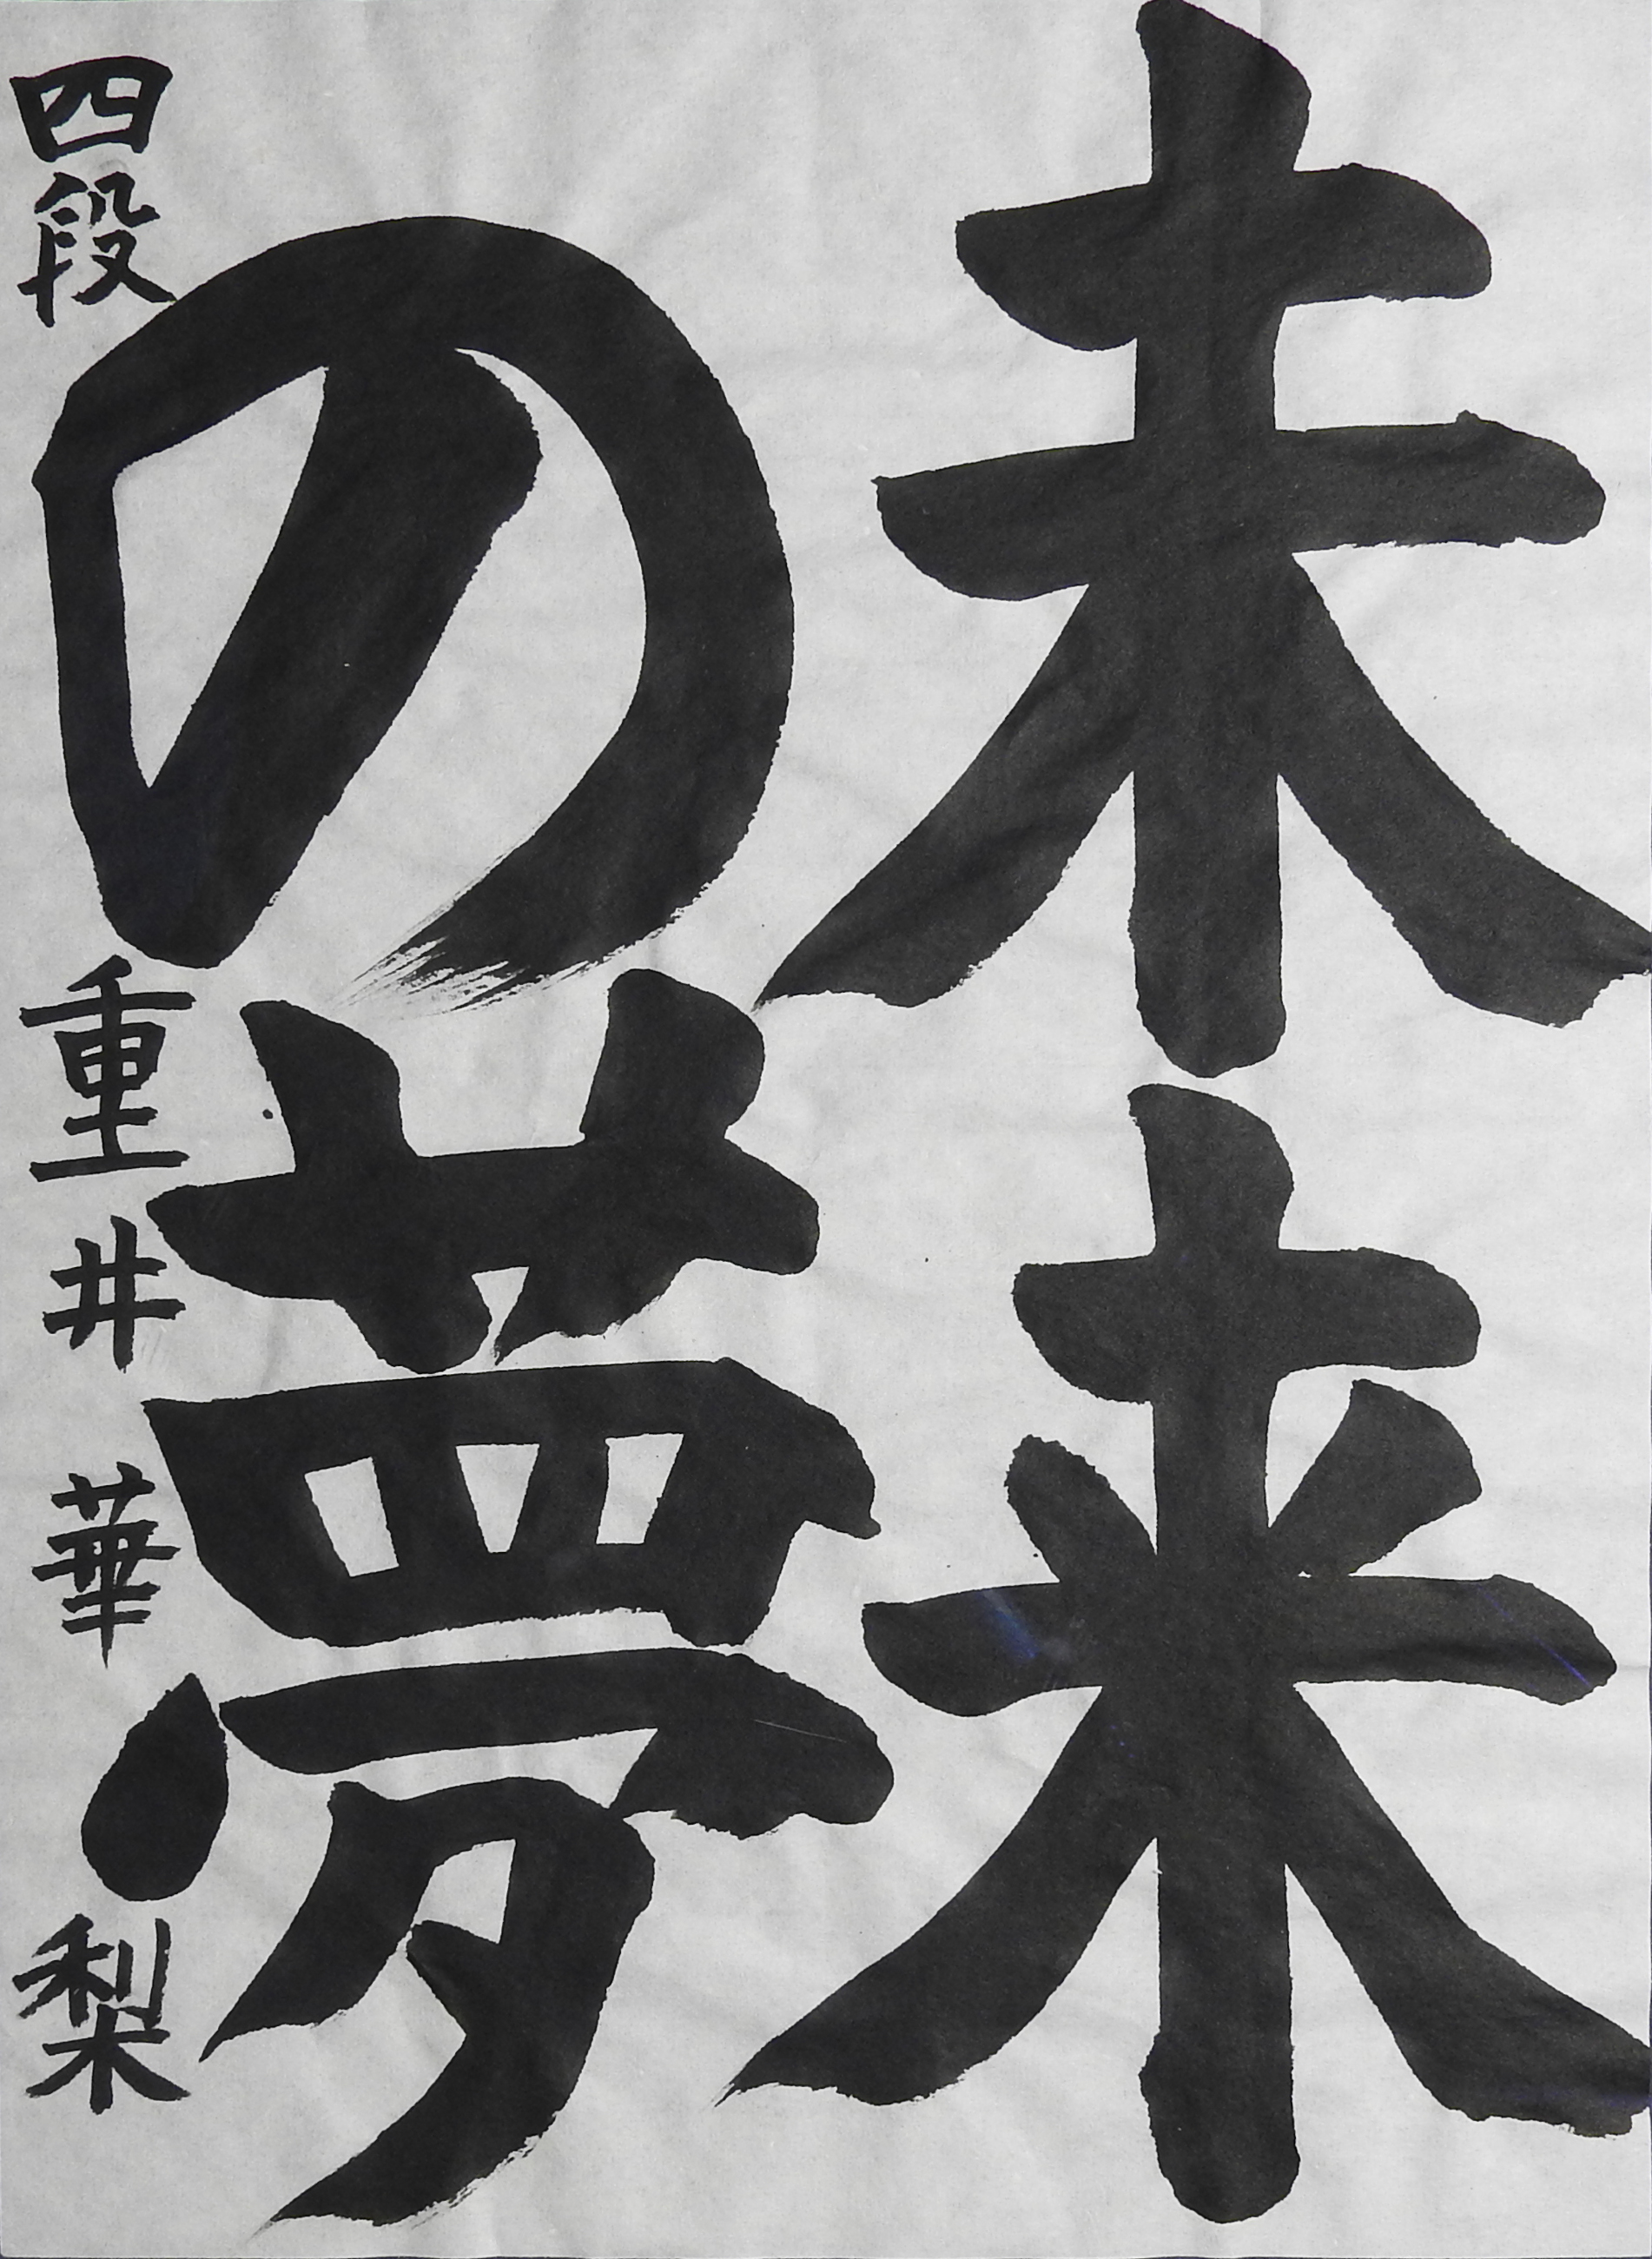 未来
の夢
四段 重井 華梨